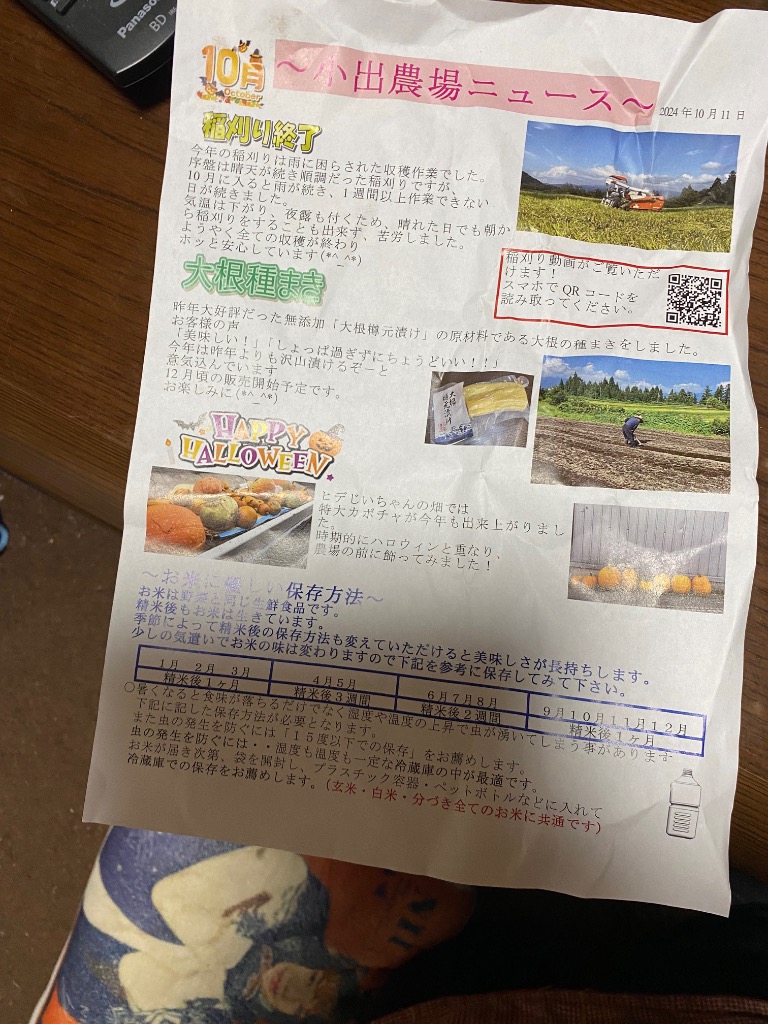 Panasonic
BD
10月
October!
～小出農場ニュース～
2024年10月11日
稲刈り終了
今年の稲刈りは雨に困らされた収穫作業でした。
序盤は晴天が続き順調だった稲刈りですが、
10月に入ると雨が続き、1週間以上作業できない
日が続きました。
気温は下がり、夜露も付くため、晴れた日でも朝か
ら稲刈りをすることも出来ず、苦労しました。
ようやく全ての収穫が終わり
ホッと安心しています(*^_^*)
稲刈り動画がご覧いただ
けます！
スマホでQRコードを
読み取ってください。
大根種まき
昨年大好評だった無添加「大根樽元漬け」の原材料である大根の種まきをしました。
お客様の声
「美味しい！」「しょっぱ過ぎずにちょうどいい！！」
今年は昨年よりも沢山漬けるぞーと
意気込んでいます
12月頃の販売開始予定です。
お楽しみに(*^_^*)
HAPPY
HALLOWEEN
ヒデじいちゃんの畑では
特大カボチャが今年も出来上がりまし
た。
時期的にハロウィンと重なり、
農場の前に飾ってみました！
～お米に嬉しい保存方法～
お米は野菜と同じ生鮮食品です。
精米後もお米は生きています。
季節によって精米後の保存方法も変えていただけると美味しさが長持ちします。
少しの気遣いでお米の味は変わりますので下記を参考に保存してみて下さい。
1月 2月 3月 4月5月 6月7月8月 9月10月11月12月
精米後1ヶ月 精米後3週間 精米後2週間 精米後1ヶ月
○暑くなると食味が落ちるだけでなく湿度や温度の上昇で虫が湧いてしまう事があります
下記に記した保存方法が必要となります。
また虫の発生を防ぐには「15度以下での保存」をお薦めします。
虫の発生を防ぐには・・湿度も温度も一定な冷蔵庫の中が最適です。
お米が届き次第、袋を開封し、プラスチック容器・ペットボトルなどに入れて
冷蔵庫での保存をお薦めします。（玄米・白米・分づき全てのお米に共通です）